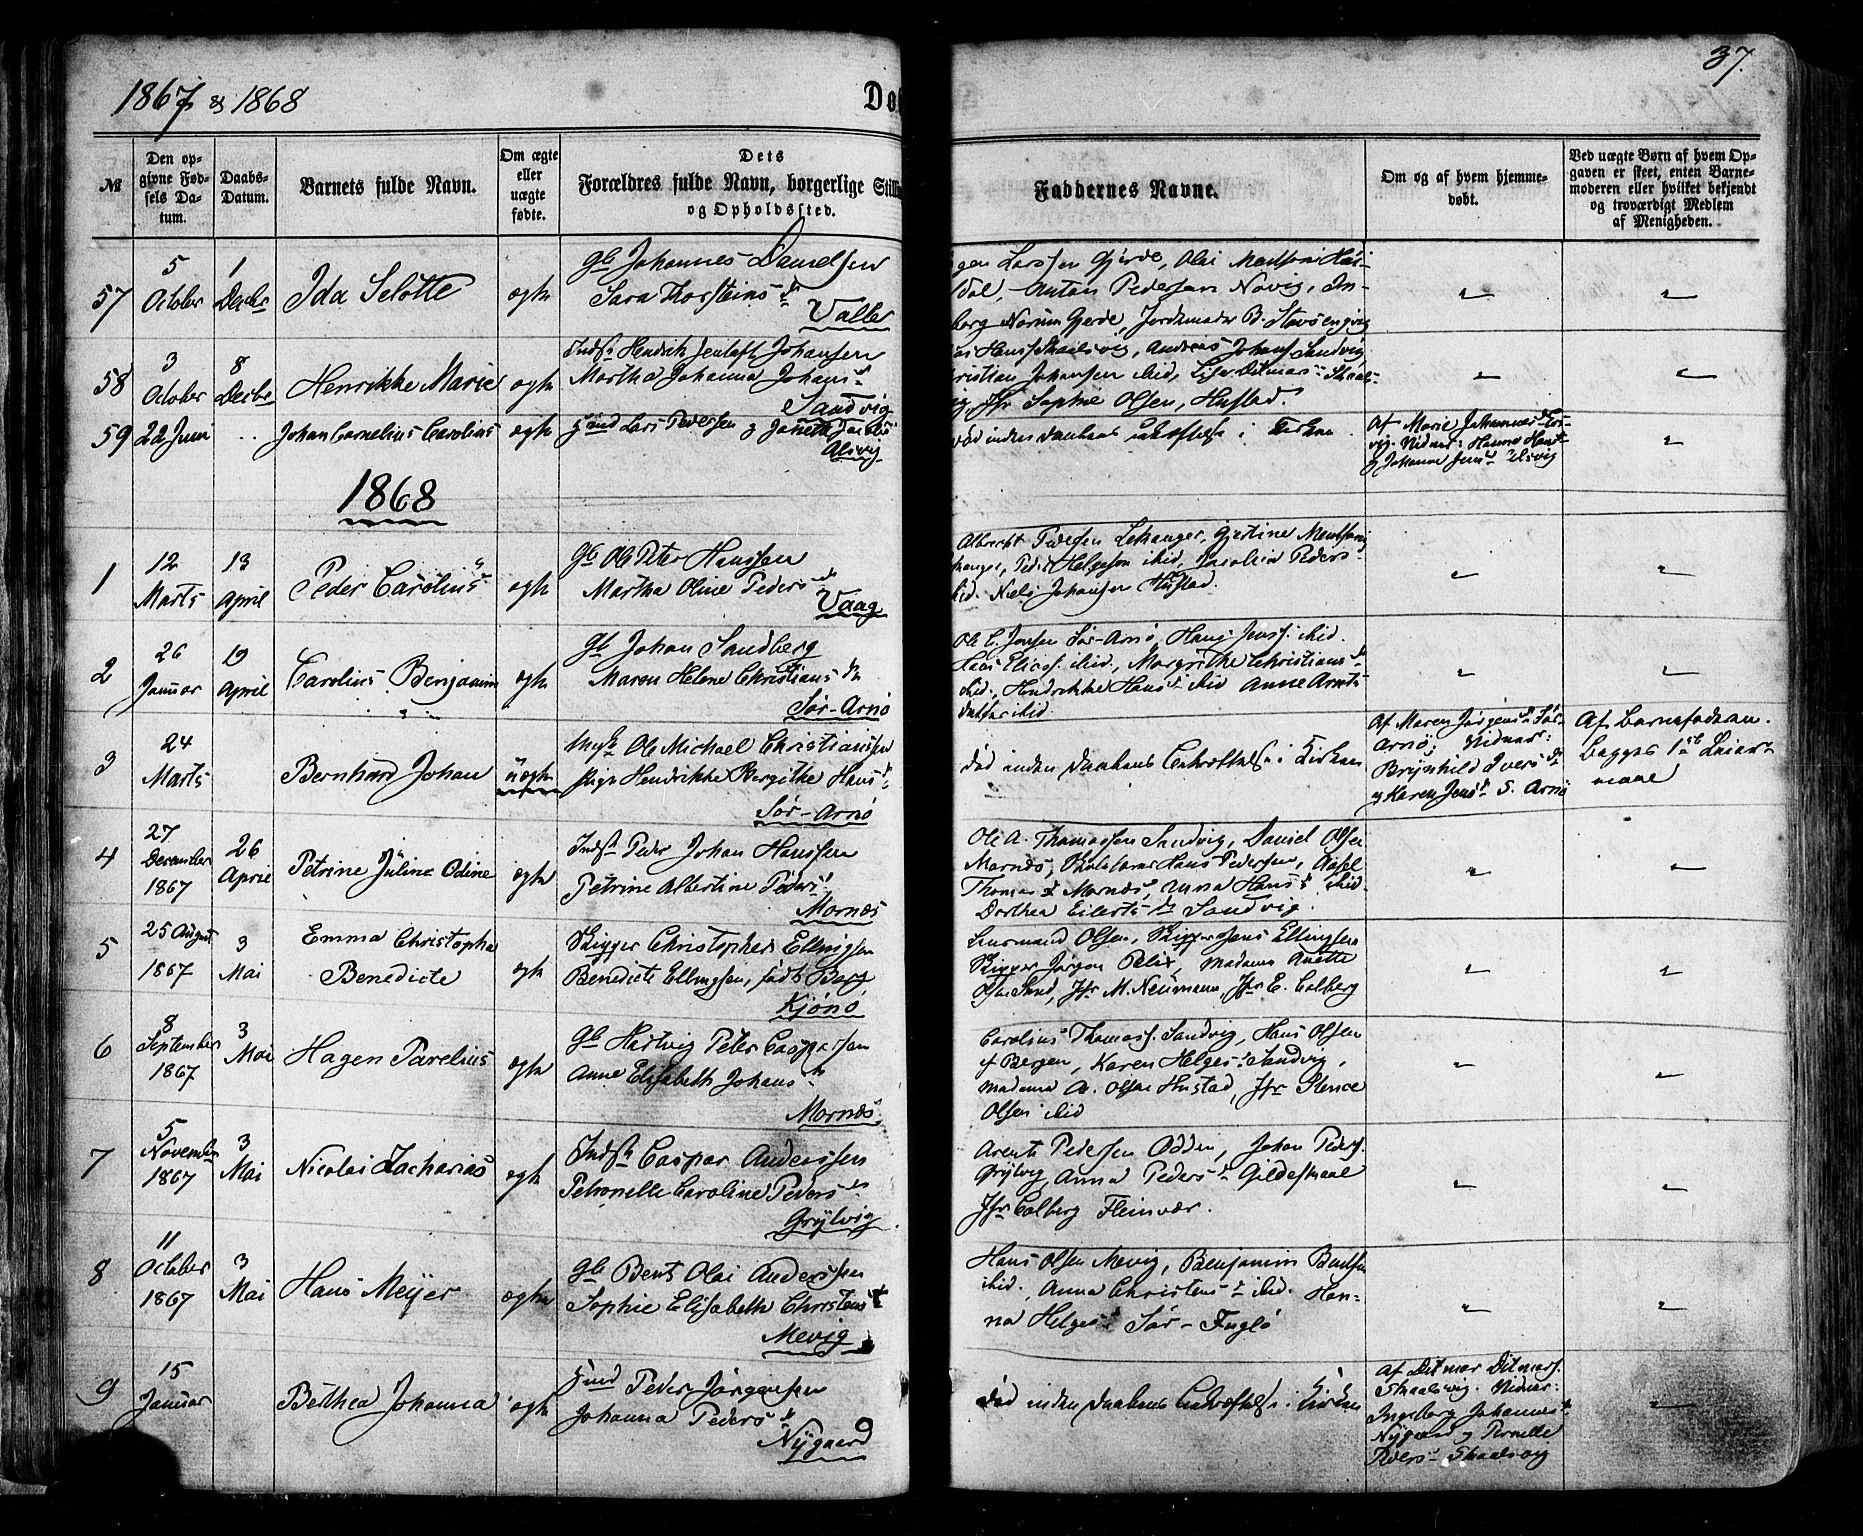 1867 & 1868
Dø
37.
№
Den op-
givne Fød-
sels Da-
tum.
Daabs-
Datum.
Barnets fulde Navn.
Om ægte
eller
uægte
fødte.
Dets
Forældres fulde Navn, borgerlige Still
og Opholdssted.
Faddernes Navne.
Om og af hvem hjemme-
døbt.
Ved uægte Børn af hvem Op-
gaven er skeet, enten Barne-
moderen eller hvilket bekjendt
og troværdigt Medlem
af Menigheden.
57
5
October
1
Decbr
Ida Selotte
ægte
Gb Johannes Danielsen
Sara Thorsteinsd
Valle
Larssen Gjerde, Olai
dal, Anton Pedersen Novig, In-
borg Norum Gjerde, Jordemoder B. Støvsengvig
58
3
October
8
Decbr
Henrikke Marie
ægte
Indst Hendrik Jentoft Johansen
Martha Johanna Johansd
Sandvig
Hans Skaalsvig, Andreas Johans. Sandvig
ristian Johansen ibid, Lise Ditmarsd Skaals-
vig, Jfr Sophie Olsen, Hustad.
59
22 Juni
..
Johan Cornelius Carolius
ægte
Hmd Lars Pedersen & Janetta
Alsvig
død inden Daabens Bekræftelse i Kirken.
Af Marie
vig. Vidner: Hanna
& Johanna Jensd Alsvig
1868
1
12
Marts
13
April
Peder Carolius
ægte
Gb Ole Peter Hanssen
Martha Oline Pedersd
Vaag
Albrecht Pedersen Lekanger, Gjertine
hanger, Peder Helgesen ibid, Karolina Peders-
ibid. Niels Johansen Hustad.
2
26
Januar
19
April
Carolius Benjamin
ægte
Gb Johan Sandberg
Maren Helene Christiansdr
Sør-Arnø
Ole C. Jensen Sør-Arnø, Hans Jenss. ibid.
Elias. ibid, Margrethe Christiansd
ibid., Hendrikke Hansd ibid Anne Arnts
datter ibid.
3
24
Marts
Bernhard Johan
uægte
Ungk Ole Michael Christianssen
Pige Hendrikke Birgithe Hansd
Sør-Arnø
død inden Daabens Bekræftelse i Kirken
Af Maren Jørgensd Sør-
Arnø, Vidner:
Brynhild Iversdr
& Karen Jensd S. Arnø
Af Barnefaderen.
begges 1ste Leier-
maal
4
27
December
1867
26
April
Petrine Juline Odine
ægte
Indst Peder Johan Hanssen
Petrine Albertine Pedersd
Mornæs
Ole A. Thomassen Sandvig, Daniel Olsen
Mornæs, Skolelærer Hans Pedersen,
Thomasd Mornæs, Anna Hansd ibid.
Dorthea Eilertsdr Sandvig.
5
25 August
1867
3
Mai
Emma Christopha
Benedicte
ægte
Skipper Christopher Ellingsen
Benedicte Ellingsen, født Berg
Kjønø
Lensmand Olsen, Skipper Jens Ellingsen
Skipper Jørgen Pelix, Madame Anette
Olsen Sund, Jfr M. Neumann, Jfr E. Colberg
6
8
September
1867
3
Mai
Hagen Parelius
ægte
Gb Hartvig Peter Caspersen
Anne Elisabeth Johansd
Mornæs.
Carolius Thomass. Sandvig, Hans Olsen
af Bergen, Karen Helgesd Sandvig,
Madame A. Olsen Hustad, Jfr
Olsen ibid
7
5
November
1867
3
Mai
Nicolai Zacharias
ægte
Indst Caspar Anderssen
Petronelle Caroline Pedersd
Grytvig
Arent Pedersen Odden, Johan Peders.
Grytvig, Anna Pedersd Gildeskaal
Jfr Colberg Fleinvær.
8
11
October
1867
3
Mai
Hans Meyer
ægte
Gb Bent Olai Anderssen
Sophie Elisabeth Christensd
Mevig
Hans Olsen Mevig, Benjamin Bentsen
ibid., Anna Christensd ibid. Han-
na Helgesd Sør-Fuglø
9
15
Januar
Bethea Johanna
ægte
Hmd Peder Jørgensen
Johanna Pedersd
Nygaard
død inden Daabens Bekræftelse i Kirken
Af Ditmar Ditmars.
Skaalsvig. Vidner:
Ingeborg Johannesd
Nygaard & Pernille
Pedersd Skaalsvig